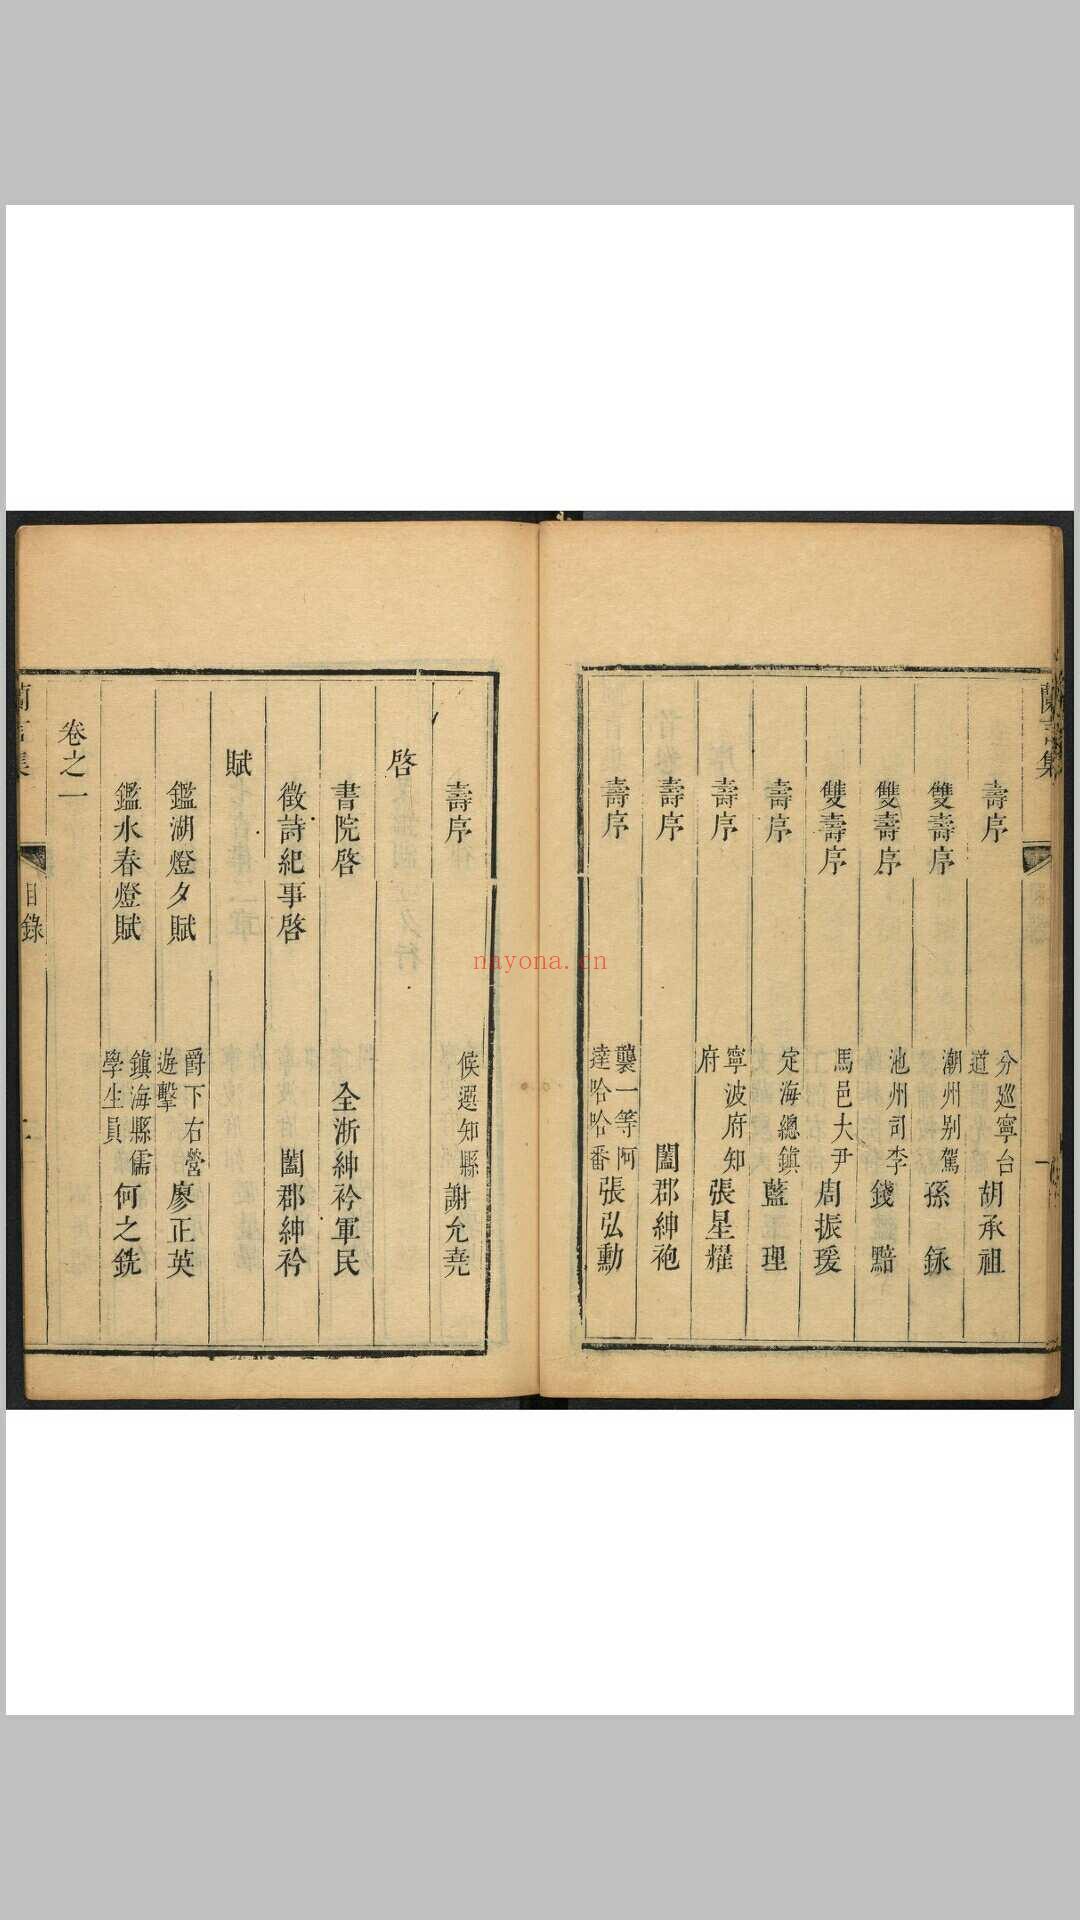 蘭言集
壽序 分巡寧台道 胡承祖
雙壽序 潮州别駕 孫銾
雙壽序 池州司李 錢黯
雙壽序 馬邑大尹 周振瑗
壽序 定海總鎮 藍理
壽序 寧波府知府 張星耀
壽序 闔郡紳袍
壽序 襲一等阿達哈哈番 張弘勳
壽序 候選知縣 謝允堯
啓
書院啓 全浙紳衿軍民
徵詩紀事啓 闔郡紳衿
賦
鑑湖燈夕賦 爵下右營遊擊 廖正英
鑑水春燈賦 鎮海縣儒學生員 何之銑
卷之一
蘭言集 目錄
nayona.cn